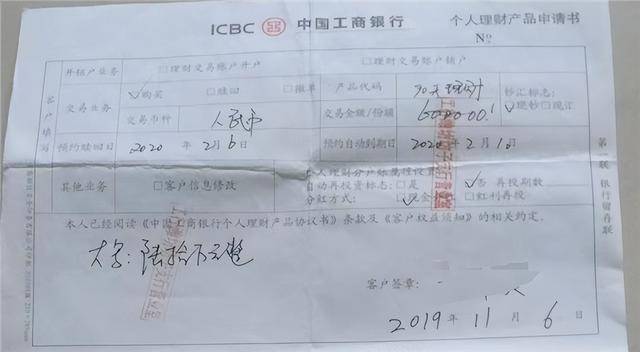 ICBC 中国工商银行 个人理财产品申请书
№
客户填写
开销户业务 □理财交易账户开户 □理财交易账户销户
交易业务 ☑购买 □赎回 □撤单 产品代码 90天理财 钞汇标志:
☑现钞□现汇
交易币种 人民币 交易金额/份额 600000.
预约赎回日期 2020年2月6日 预约自动到期日 2020年2月1日
其他业务 □客户信息修改
个人理财分户账属性设置
自动再投资标志:□是 ☑否 再投期数
分红方式:☑现金 □红利再投
本人已经阅读《中国工商银行个人理财产品协议书》条款及《客户权益须知》的相关约定。
大字:陆拾万元整
客户签章:
2019年11月6日
第 联 银行留存联